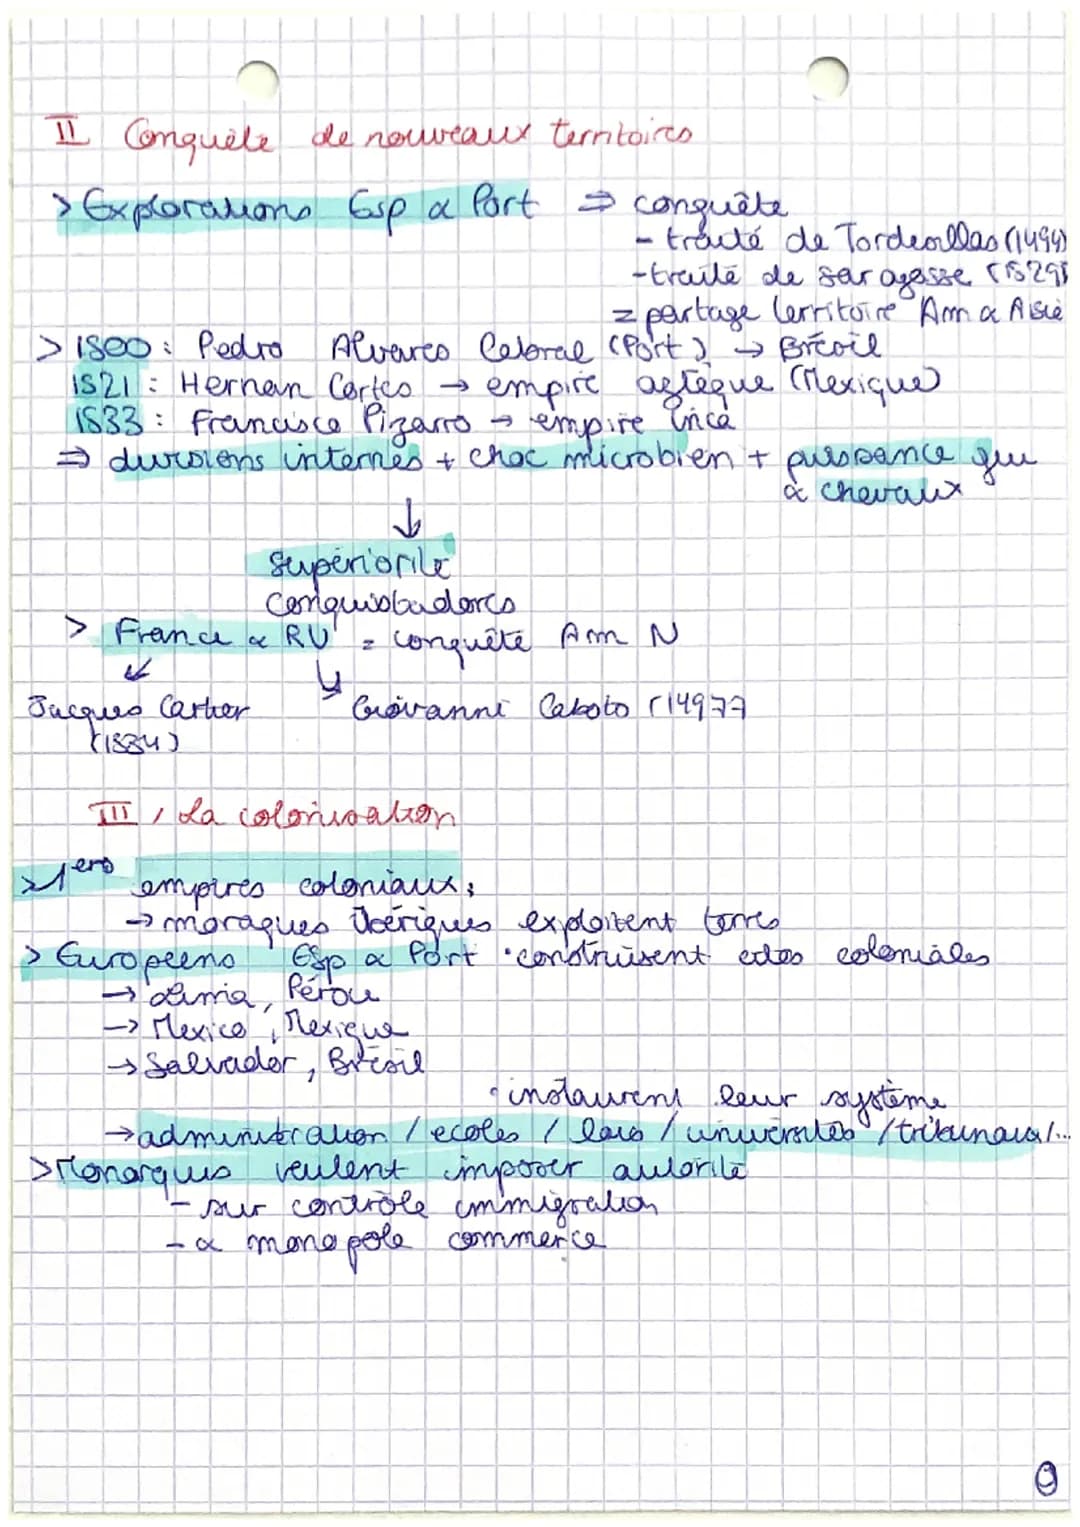 II Conquête de nouveaux territoires
> Explorations Esp & Port ⇒ conquête
- traité de Tordesillas (1494)
- traité de saragosse (1529)
= partage territoire Am & Asie
> 1500 : Pedro Alvares Cabral (Port) → Brésil
1521 : Hernan Cortes → empire aztèque (Mexique)
1533 : Francisco Pizarro → empire inca
⇒ divisions internes + choc microbien + puissance gue
& chevaux
↓
supériorité
conquistadores
> France & RU = conquête Am N
↙ ↘
Jacques Cartier Giovanni Caboto (1497)
(1534)
III / La colonisation
> 1ers empires coloniaux :
→ monarques ibériques exploitent terres
> Européens Esp & Port • construisent cités coloniales
→ Lima, Pérou
→ Mexico, Mexique
→ Salvador, Brésil
• instaurent leur système
→ administration / ecoles / lois / universités / tribunaux /...
> Monarques veulent imposer autorité
- sur contrôle immigration
- & monopole commerce